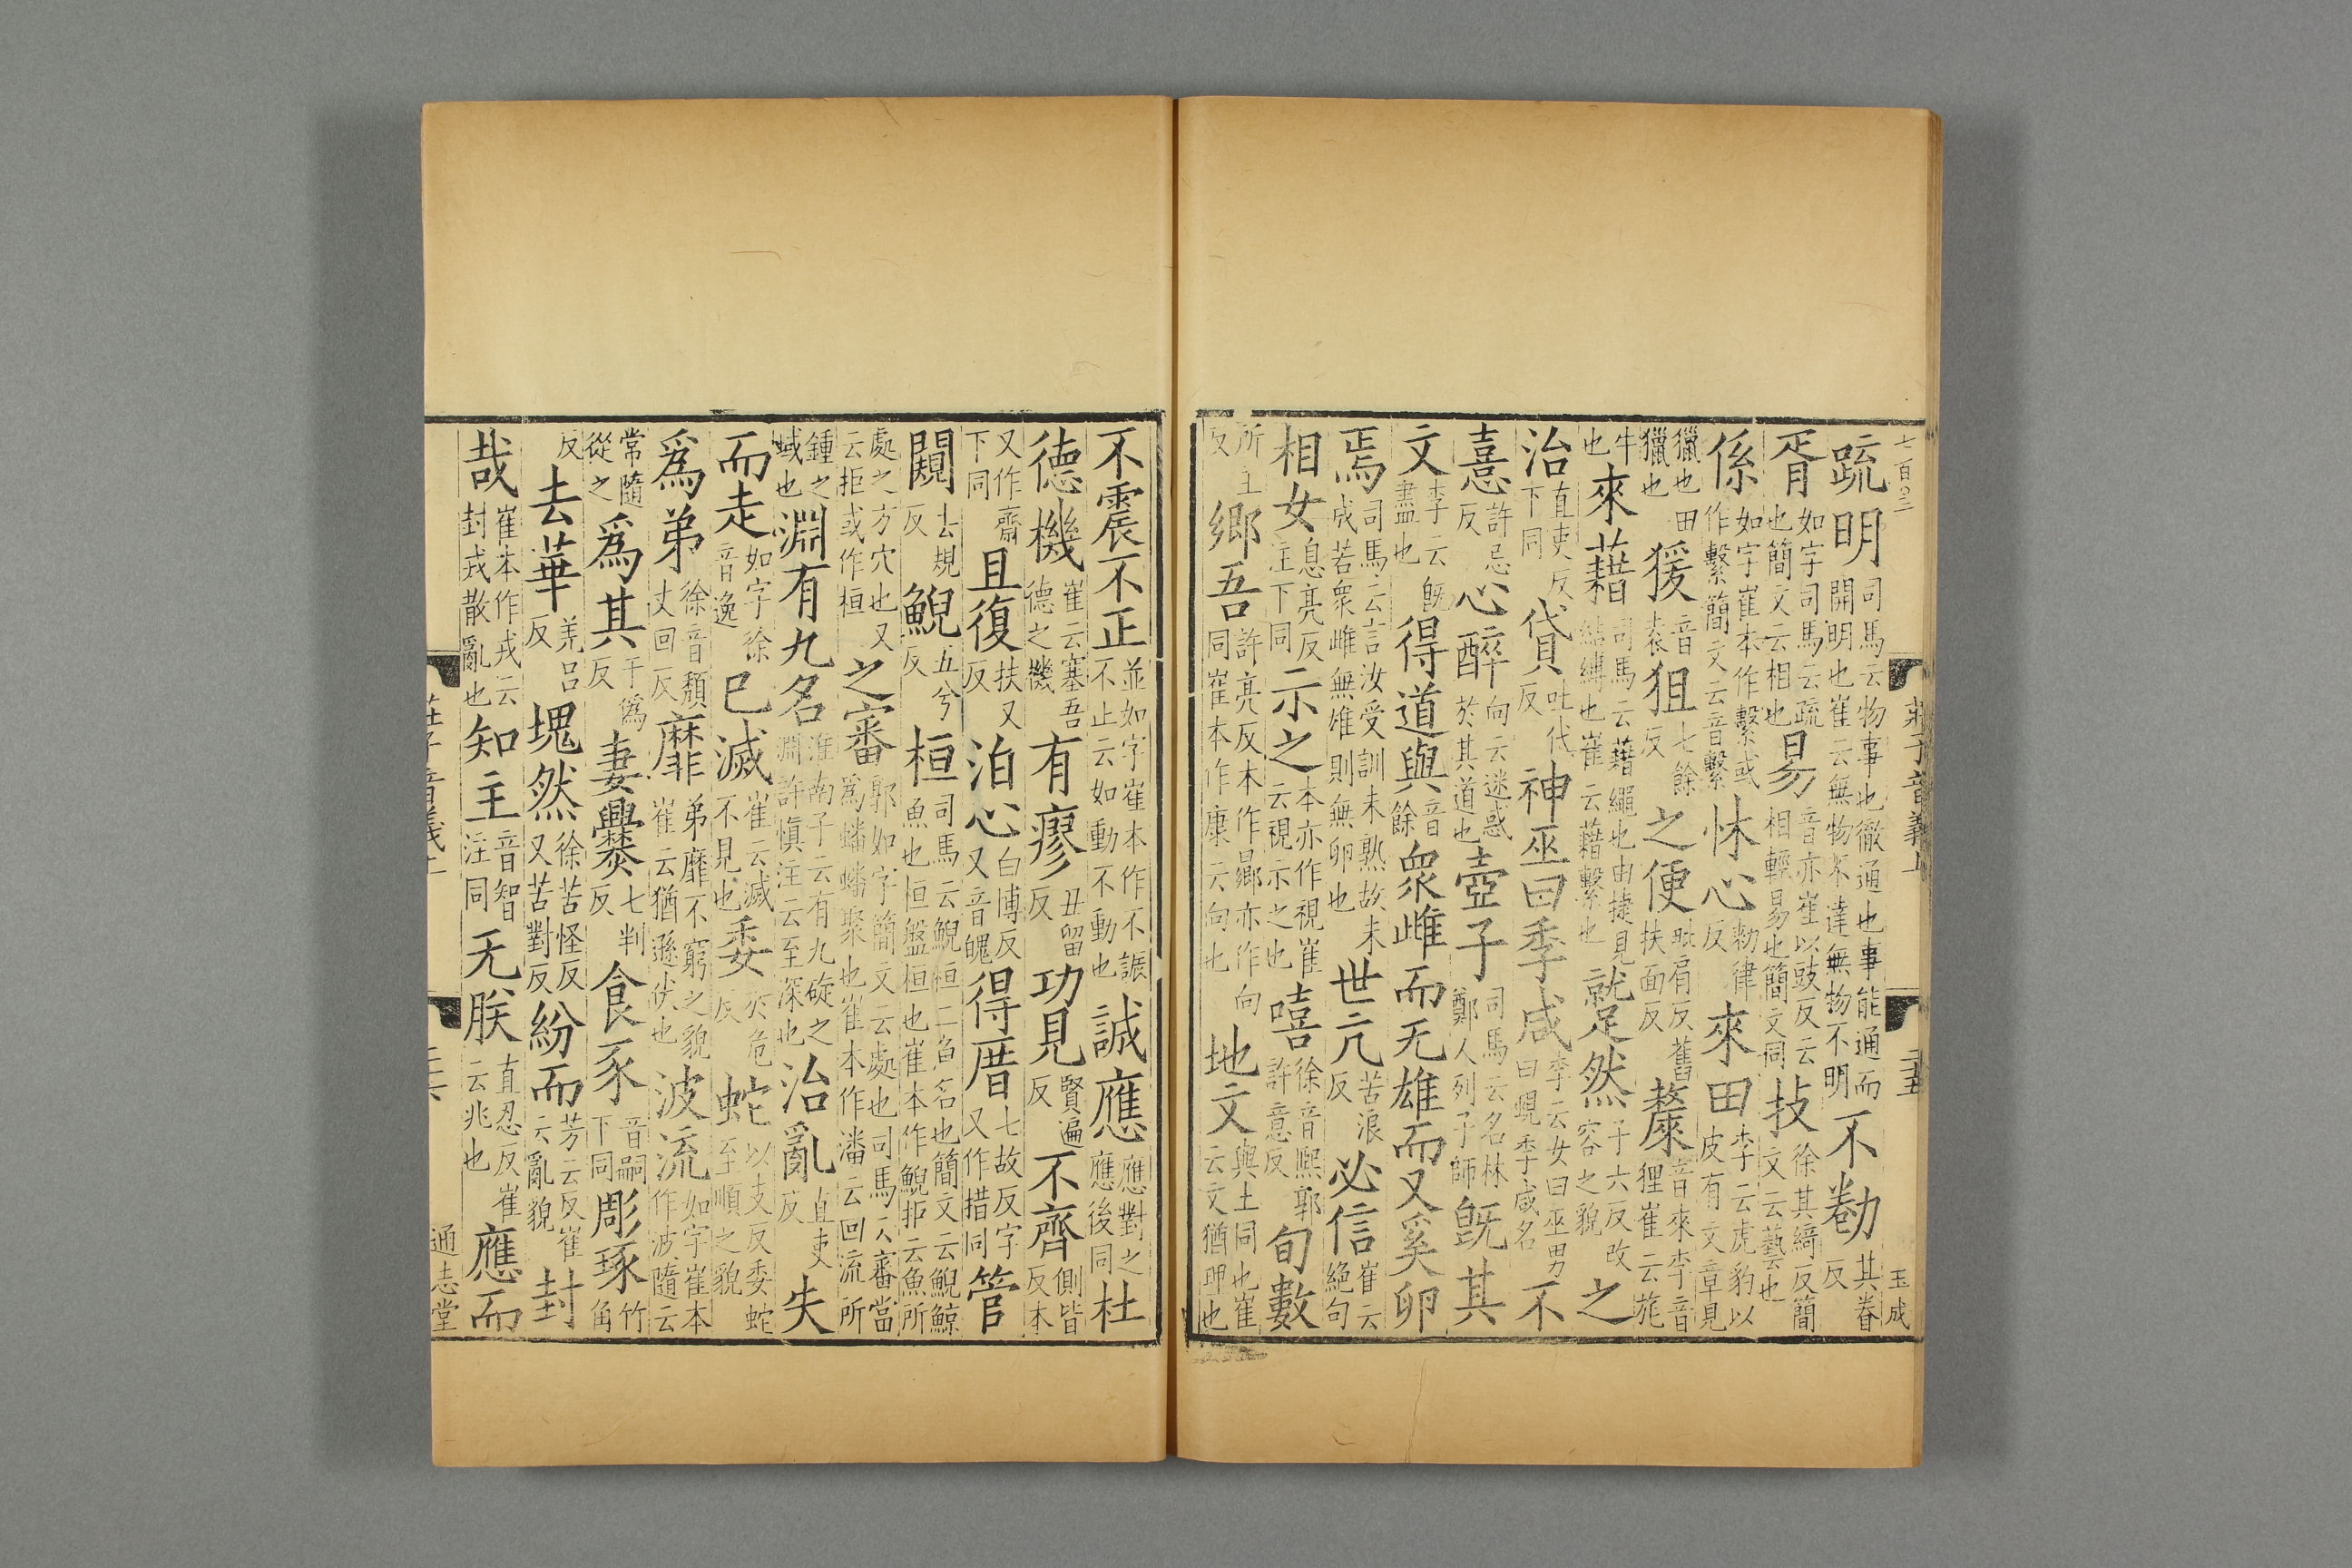 七百○三 莊子音義上 二十五 玉成
疏明司馬云物事也徹通也事能通而開明也崔云無物不達無物不明不勌其眷反
胥如字司馬云疏也簡文云相也易音亦崔以豉反云相輕易也簡文同技徐其綺反簡文云藝也
係如字崔本作繫或作繫簡文云音繫怵心勑律反來田李云虎豹以皮有文章見
獵也田獵也猨音袁狙七餘反之便毗肩反舊扶面反斄音來李音狸崔云旄
牛也來藉司馬云藉繩也由捷見結縛也崔云藉繫也就足然子六反改容之貌之
治直吏反下同貸吐代反神巫曰季咸李云女曰巫男曰覡季咸名不
憙許忌反心醉向云迷惑於其道也壺子司馬云名林鄭人列子師旣其
文李云旣盡也得道與音餘衆雌而无雄而又奚卵
焉司馬云言汝受訓未熟故未成若衆雌無雄則無卵也世亢苦浪反必信崔云絕句
相女息亮反注下同示之本亦作視崔云視示之也嘻徐音熙郭許意反旬數
所主反鄉吾許亮反本作曏亦作向同崔本作康云向也地文與土同也崔云文猶理也
不震不正並如字崔本作不誫不止云如動不動也誠應應對之應後同杜
德機崔云塞吾德之機有瘳丑留反功見賢遍反不齊側皆反本
又作齋下同且復扶又反泊心白博反又音魄得厝七故反字又作措同管
闚去規反鯢五兮反桓司馬云鯢桓二魚名也簡文云鯢鯨魚也桓盤桓也崔本作鯢拒云魚所
處之方穴也又云拒或作桓之審郭如字簡文云處也司馬云審當爲蟠蟠聚也崔本作潘云回流所
鍾之域也淵有九名淮南子云有九琁之淵許愼注云至深也治亂直吏反失
而走如字徐音逸已滅崔云滅不見也委於危反蛇以支反委蛇至順之貌
爲弟徐音頹丈回反靡弟靡不窮之貌崔云猶遜伏也波流如字崔本作波隨云
常隨從之爲其于僞反妻爨七判反食豕音嗣下同彫琢竹角
反去華羌呂反塊然徐苦怪反又苦對反紛而芳云反崔云亂貌封
哉崔本作戎云封戎散亂也知主音智注同无朕直忍反崔云兆也應而
通志堂